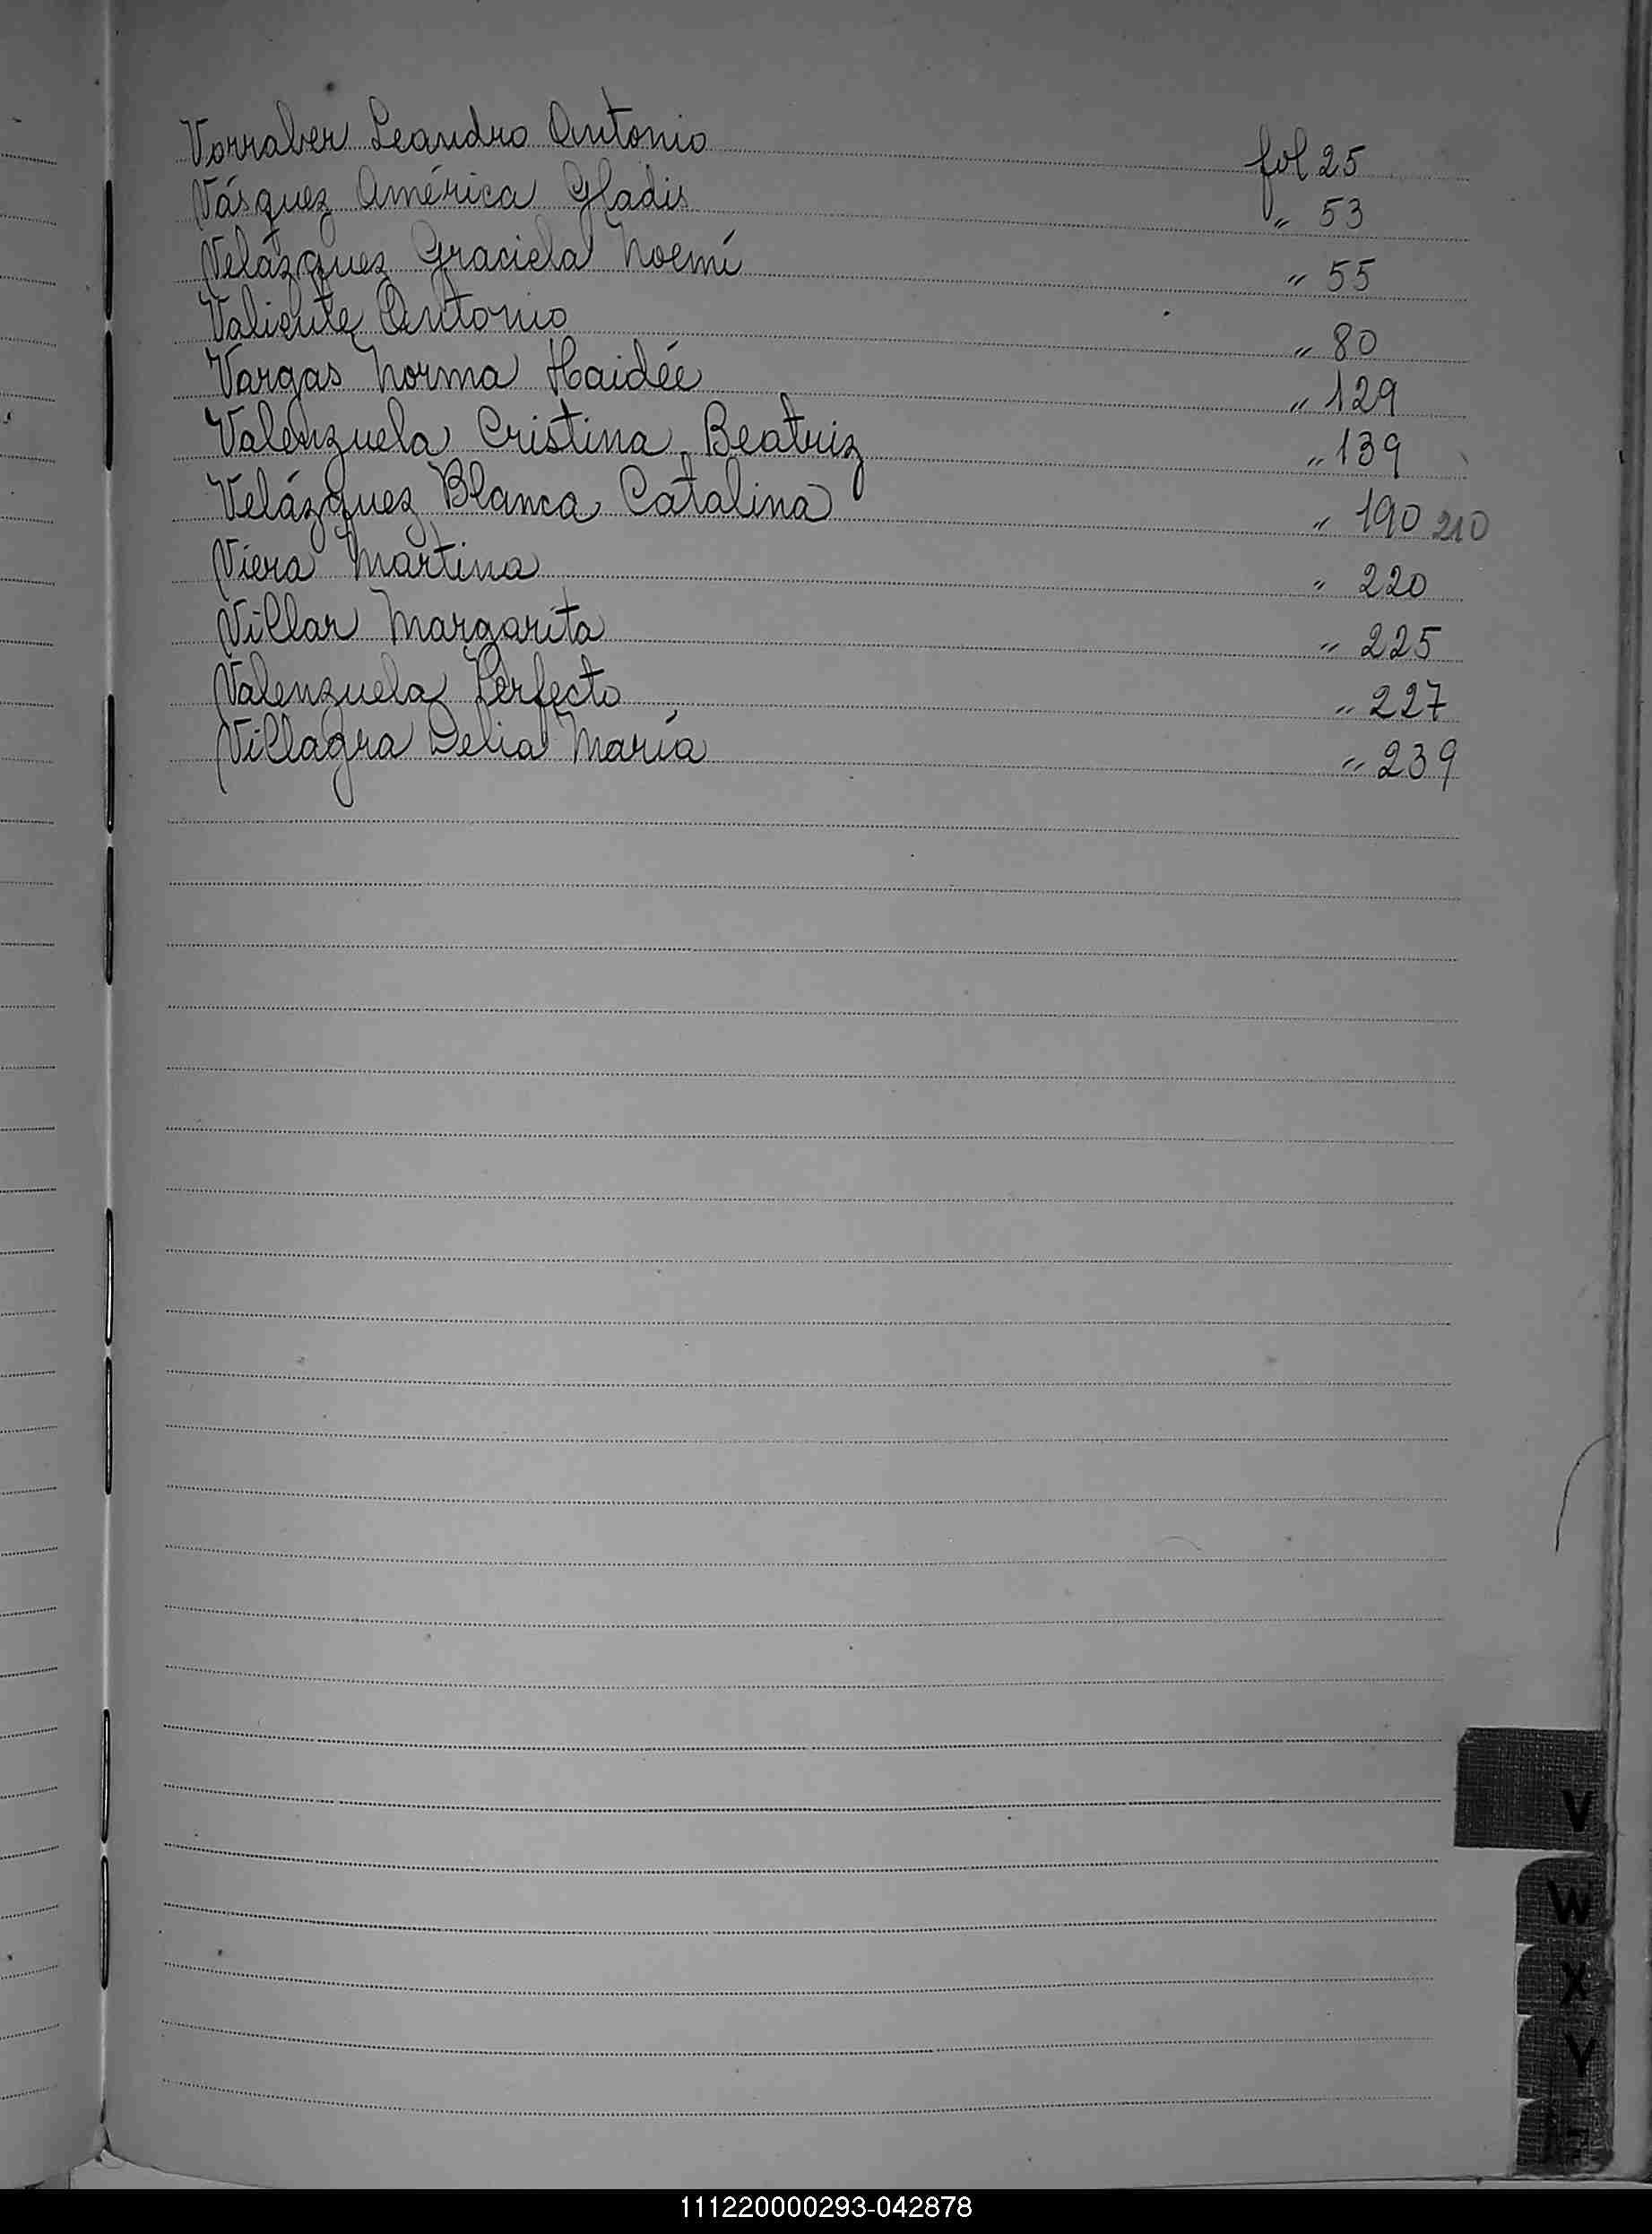 Vorraber Leandro Antonio fol 25
Vásquez América Gladis " 53
Velázquez Graciela Noemí " 55
Valiente Antonio " 80
Vargas Norma Haidée " 129
Valenzuela Cristina Beatriz " 139
Velázquez Blanca Catalina " 190 210
Viera Martina " 220
Villar Margarita " 225
Valenzuela Perfecto " 227
Villagra Delia María " 239
V
W
X
Y
Z
111220000293-042878